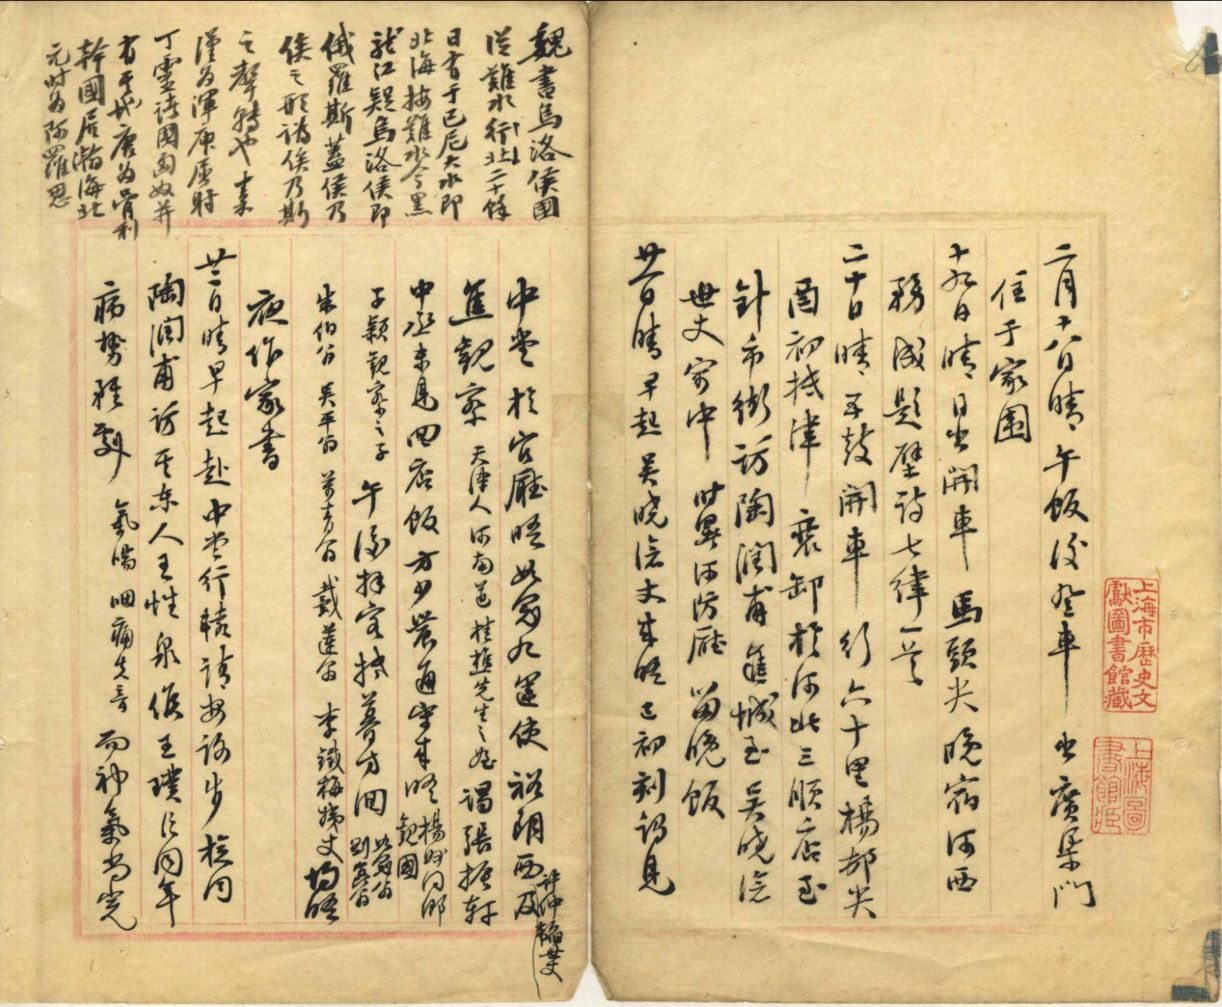 二月十八日晴午飯後登車出廣渠門
住于家圍
十九日晴日出開車馬頭尖晚宿河西
務成題壁詩七律一首
二十日晴五鼓開車行六十里楊村尖
酉初抵津裝卸於河北三順店至
針市街訪陶潤甫進城至吳曉滄
世丈寓中時署河防廳留晚飯
廿一日晴早起吳曉滄丈來晤巳初刻謁見
中堂於官廳晤如冠九運使裕朗西及
許仲韜世丈
觀察天津人河南道桂樵先生之姪謁張振軒
中丞未見回店飯方少農通守來晤楊
觀國
子穎觀察之子午後拜客抵暮方回
朱伯翁吳平翁黃青翁戴蓮翁李鐵梅姨丈均晤
夜作家書
廿二日晴早起赴中堂行轅請安詢步梭同
陶潤甫訪其東人王性泉侯王璞臣同年
病勢雖劇氣喘咽痛失音而神氣尚完
魏書烏洛侯國
從難水行北二十餘
日有于已尼大水即
北海按難水今黑
龍江疑烏洛侯即
俄羅斯蓋侯乃
俟之形譌俟乃斯
之聲轉也
漢為渾庾屈射
丁靈諸國匈奴并
有其地唐為骨利
幹國居瀚海北
元時為阿羅思
上海市歷史文
獻圖書館藏
上海圖
書館藏